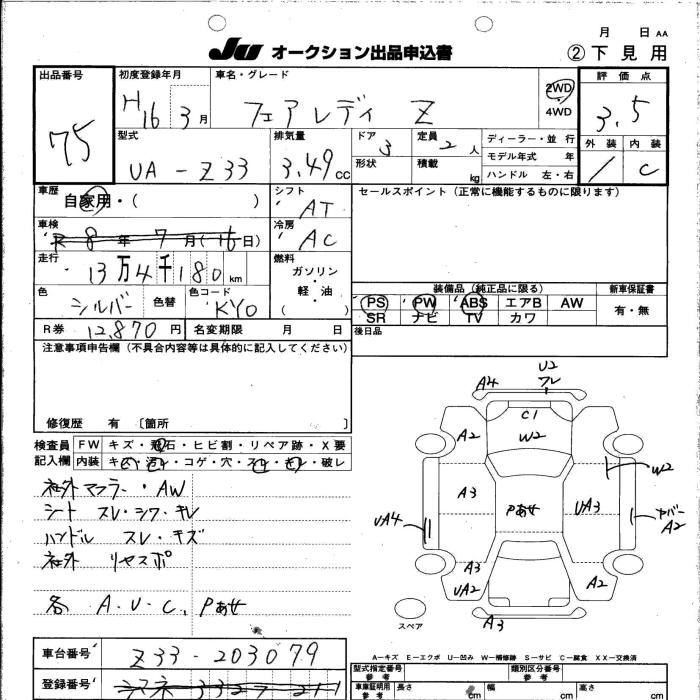 月 日 AA
JU オークション出品申込書 ②下見用
出品番号 初度登録年月 車名・グレード 2WD 評価点
75 H16 3月 フェアレディ Z 4WD 3.5
型式 排気量 ドア 定員 ディーラー・並行 外装 内装
UA-Z33 3.49cc 3 2人 モデル年式 年 / C
形状 積載 kg ハンドル 左・右
車歴 シフト セールスポイント (正常に機能するものに限ります)
自家用・( ) AT
車検 冷房
R 8年 7月(16日) AC
走行 燃料
13万4千180km ガソリン・軽・油 ( )
装備品 (純正品に限る) 新車保証書
色 色替 色コード PS PW ABS エアB AW 有・無
シルバー KY0 SR ナビ TV カワ
R券 12,870円 名変期限 月 日 後日品
注意事項申告欄 (不具合内容等は具体的に記入してください)
修復歴 有 〔箇所 〕
検査員 FW キズ・飛石・ヒビ割・リペア跡・X要
記入欄 内装 キレ・汚レ・コゲ・穴・スレ・キズ・破レ
社外マフラー・AW
シート スレ・シワ・キレ
ハンドル スレ・キズ
社外 リヤスポ
各 A.U.C. Pあせ
U2
フレ
A4
C1
A2
W2
W2
A3
Pあせ
UA3
UA4
カバー
A2
A3
UA2
A2
スペア
A3
A-キズ E-エクボ U-凹み W-補修跡 S-サビ C-腐食 XX-交換済
車台番号 Z33-203079
型式指定番号 参考 類別区分番号 参考
登録番号
車庫証明用 参考 長さ cm 幅 cm 高さ cm